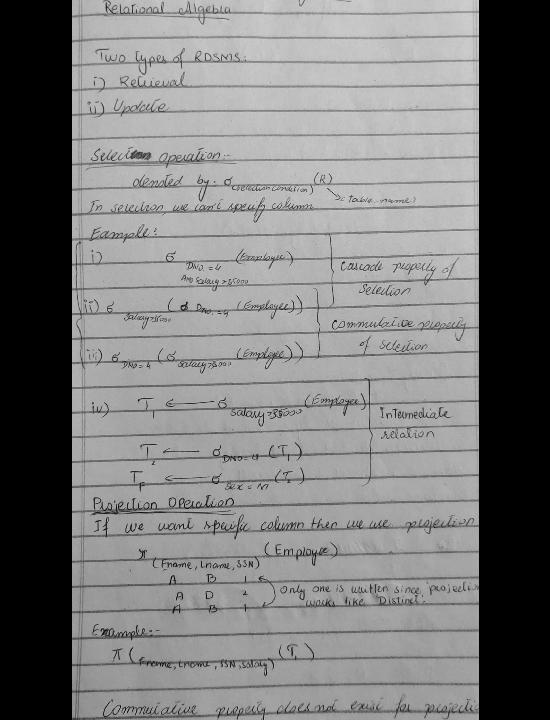 Relational Algebra
Two types of RDSMS:
i) Retrieval
ii) Update
Selection operation:-
denoted by: σ (selection condition) (R)
→ table name
In selection, we can't specify column
Example:
i) σ DNO. = 4 AND Salary > 35000 (Employee)
ii) σ Salary > 35000 (σ DNO. = 4 (Employee))
Cascade property of
Selection
iii) σ DNO = 4 (σ Salary > 35000 (Employee))
Commutative property
of Selection
iv) T₁ ← σ Salary > 35000 (Employee)
T₂ ← σ DNO = 4 (T₁)
Intermediate
relation
T_F ← σ Sex = M (T₂)
Projection Operation
If we want specific column then we use projection
π (Fname, Lname, SSN) (Employee)
A B 1
A D 2
A B 1
Only one is written since projection
works like 'Distinct'.
Example:-
π (Fname, Lname, SSN, Salary) (T₁)
Commutative property does not exist for projectio